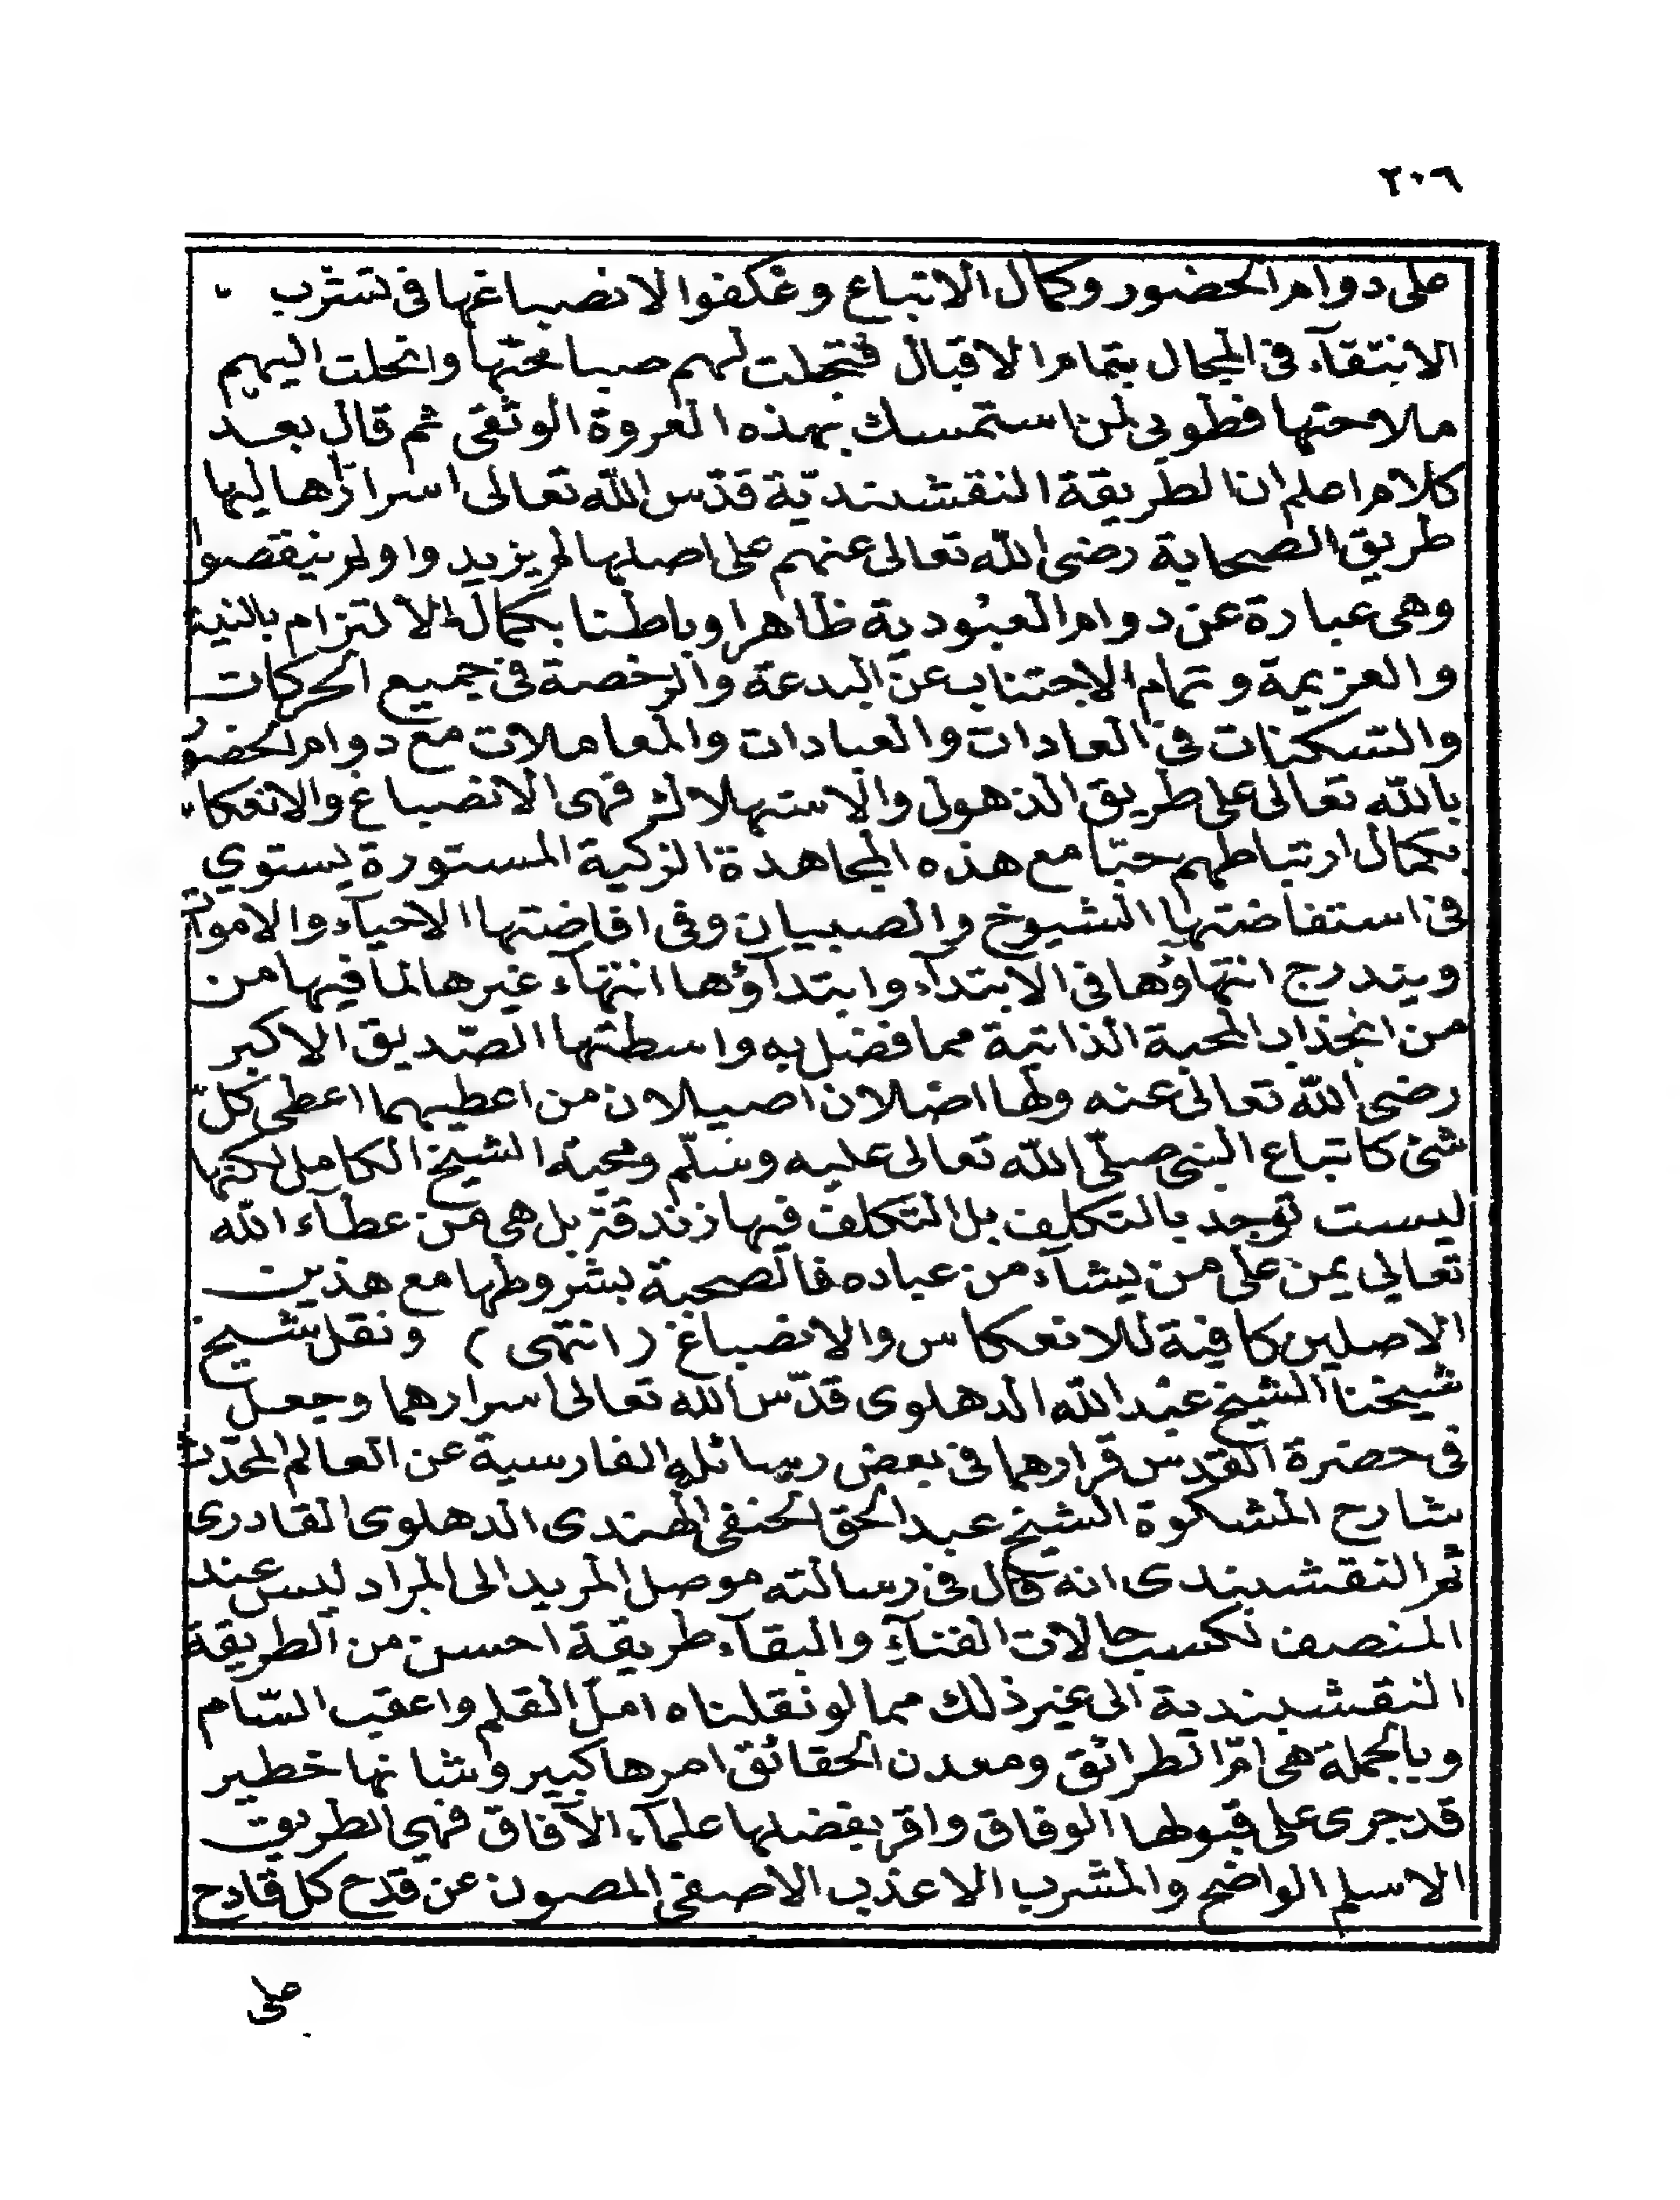 ٢٠٦
على دوام الحضور وكمال الاتباع وعكفوا لانصباغها فى تشرب
الانتقآء فى المجال بتمام الاقبال فتجلت لهم صباحتها وانجلت اليهم
ملاحتها فطوبى لمن استمسك بهذه العروة الوثقى ثم قال بعد
كلام اعلم ان الطريقة النقشبنديّة قدّس الله تعالى اسرار اهاليها
طريق الصحابة رضى الله تعالى عنهم على اصلها لم يزيدوا ولم ينقصوا
وهى عبارة عن دوام العبودية ظاهرا وباطنا بكمال الالتزام بالنية
والعزيمة وتمام الاجتناب عن البدعة والرخصة فى جميع الحركات
والسكنات فى العادات والعبادات والمعاملات مع دوام الحضو
بالله تعالى على طريق الذهول والاستهلاك فهى الانصباغ والانعكا
بكمال ارتباطهم حبّا مع هذه المجاهدة الزكية المستورة يستوي
فى استفاضتها الشيوخ والصبيان وفى افاضتها الاحيآء والاموات
ويندرج انتهاؤها فى الابتدآء وابتدآؤها انتهآء غيرها لما فيها من
من انجذاب المحبة الذاتية مما فضل به واسطتها الصّديق الاكبر
رضى الله تعالى عنه ولها اصلان اصيلان من اعطيهما اعطى كل
شئ كاتباع النبى صلّى الله تعالى عليه وسلّم ومحبة الشيخ الكامل لكنها
ليست توجد بالتكلف بل التكلف فيها زندقة بل هى من عطآء الله
تعالى يمن على من يشآء من عباده فالصحبة بشروطها مع هذين
الاصلين كافية للانعكاس والانصباغ (انتهى) ونقل شيخ
شيخنا الشيخ عبد الله الدهلوى قدّس الله تعالى اسرارهما وجعل
فى حضرة القدس قرارهما فى بعض رسائله الفارسية عن العالم المحدّث
شارح المشكوة الشيخ عبد الحق الحنفى الهندى الدهلوى القادرى
ثم النقشبندى انه قال فى رسالته موصل المريد الى المراد ليس عند
المنصف لكسب حالات الفنآء والبقآء طريقة احسن من الطريقة
النقشبندية الى غير ذلك مما لو نقلناه امل القلم واعقب السّام
وبالجملة هى امّ الطرائق ومعدن الحقائق امرها كبير وشانها خطير
قد جرى على قبولها الوفاق واقر بفضلها علمآء الآفاق فهى الطريق
الاسلم الواضح والمشرب الاعذب الاصفى المصون عن قدح كل قادح
على